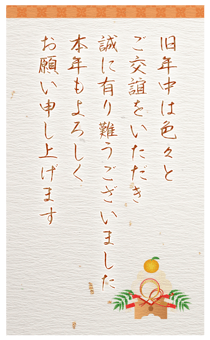 旧年中は色々と
ご交誼をいただき
誠に有り難うございました
本年もよろしく
お願い申し上げます